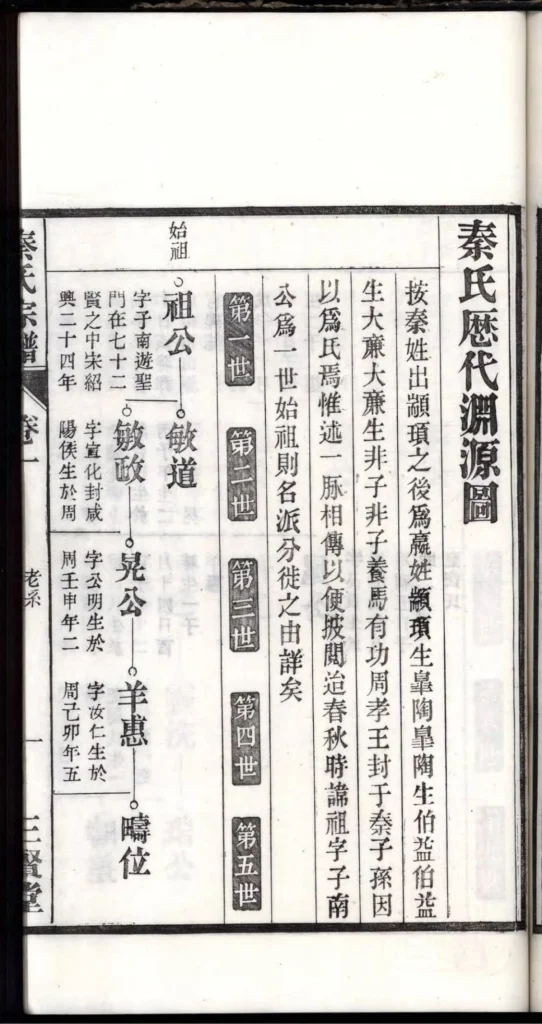 秦氏歷代淵源圖
按秦姓出顓頊之後為嬴姓顓頊生皐陶皐陶生伯益伯益
生大亷大亷生非子非子養馬有功周孝王封于秦子孫因
以為氏焉惟述一脉相傳以便披閱迨春秋時諱祖字子南
公為一世始祖則名派分徙之由詳矣
第一世
第二世
第三世
第四世
第五世
始祖
祖公
字子南遊聖
門在七十二
賢之中宋紹
興二十四年
敏道
敏政
字宣化封咸
陽侯生於周
晃公
字公明生於
周壬申年二
羊惠
字汝仁生於
周己卯年五
疇位
秦氏宗譜
卷一
老系
一
三賢堂